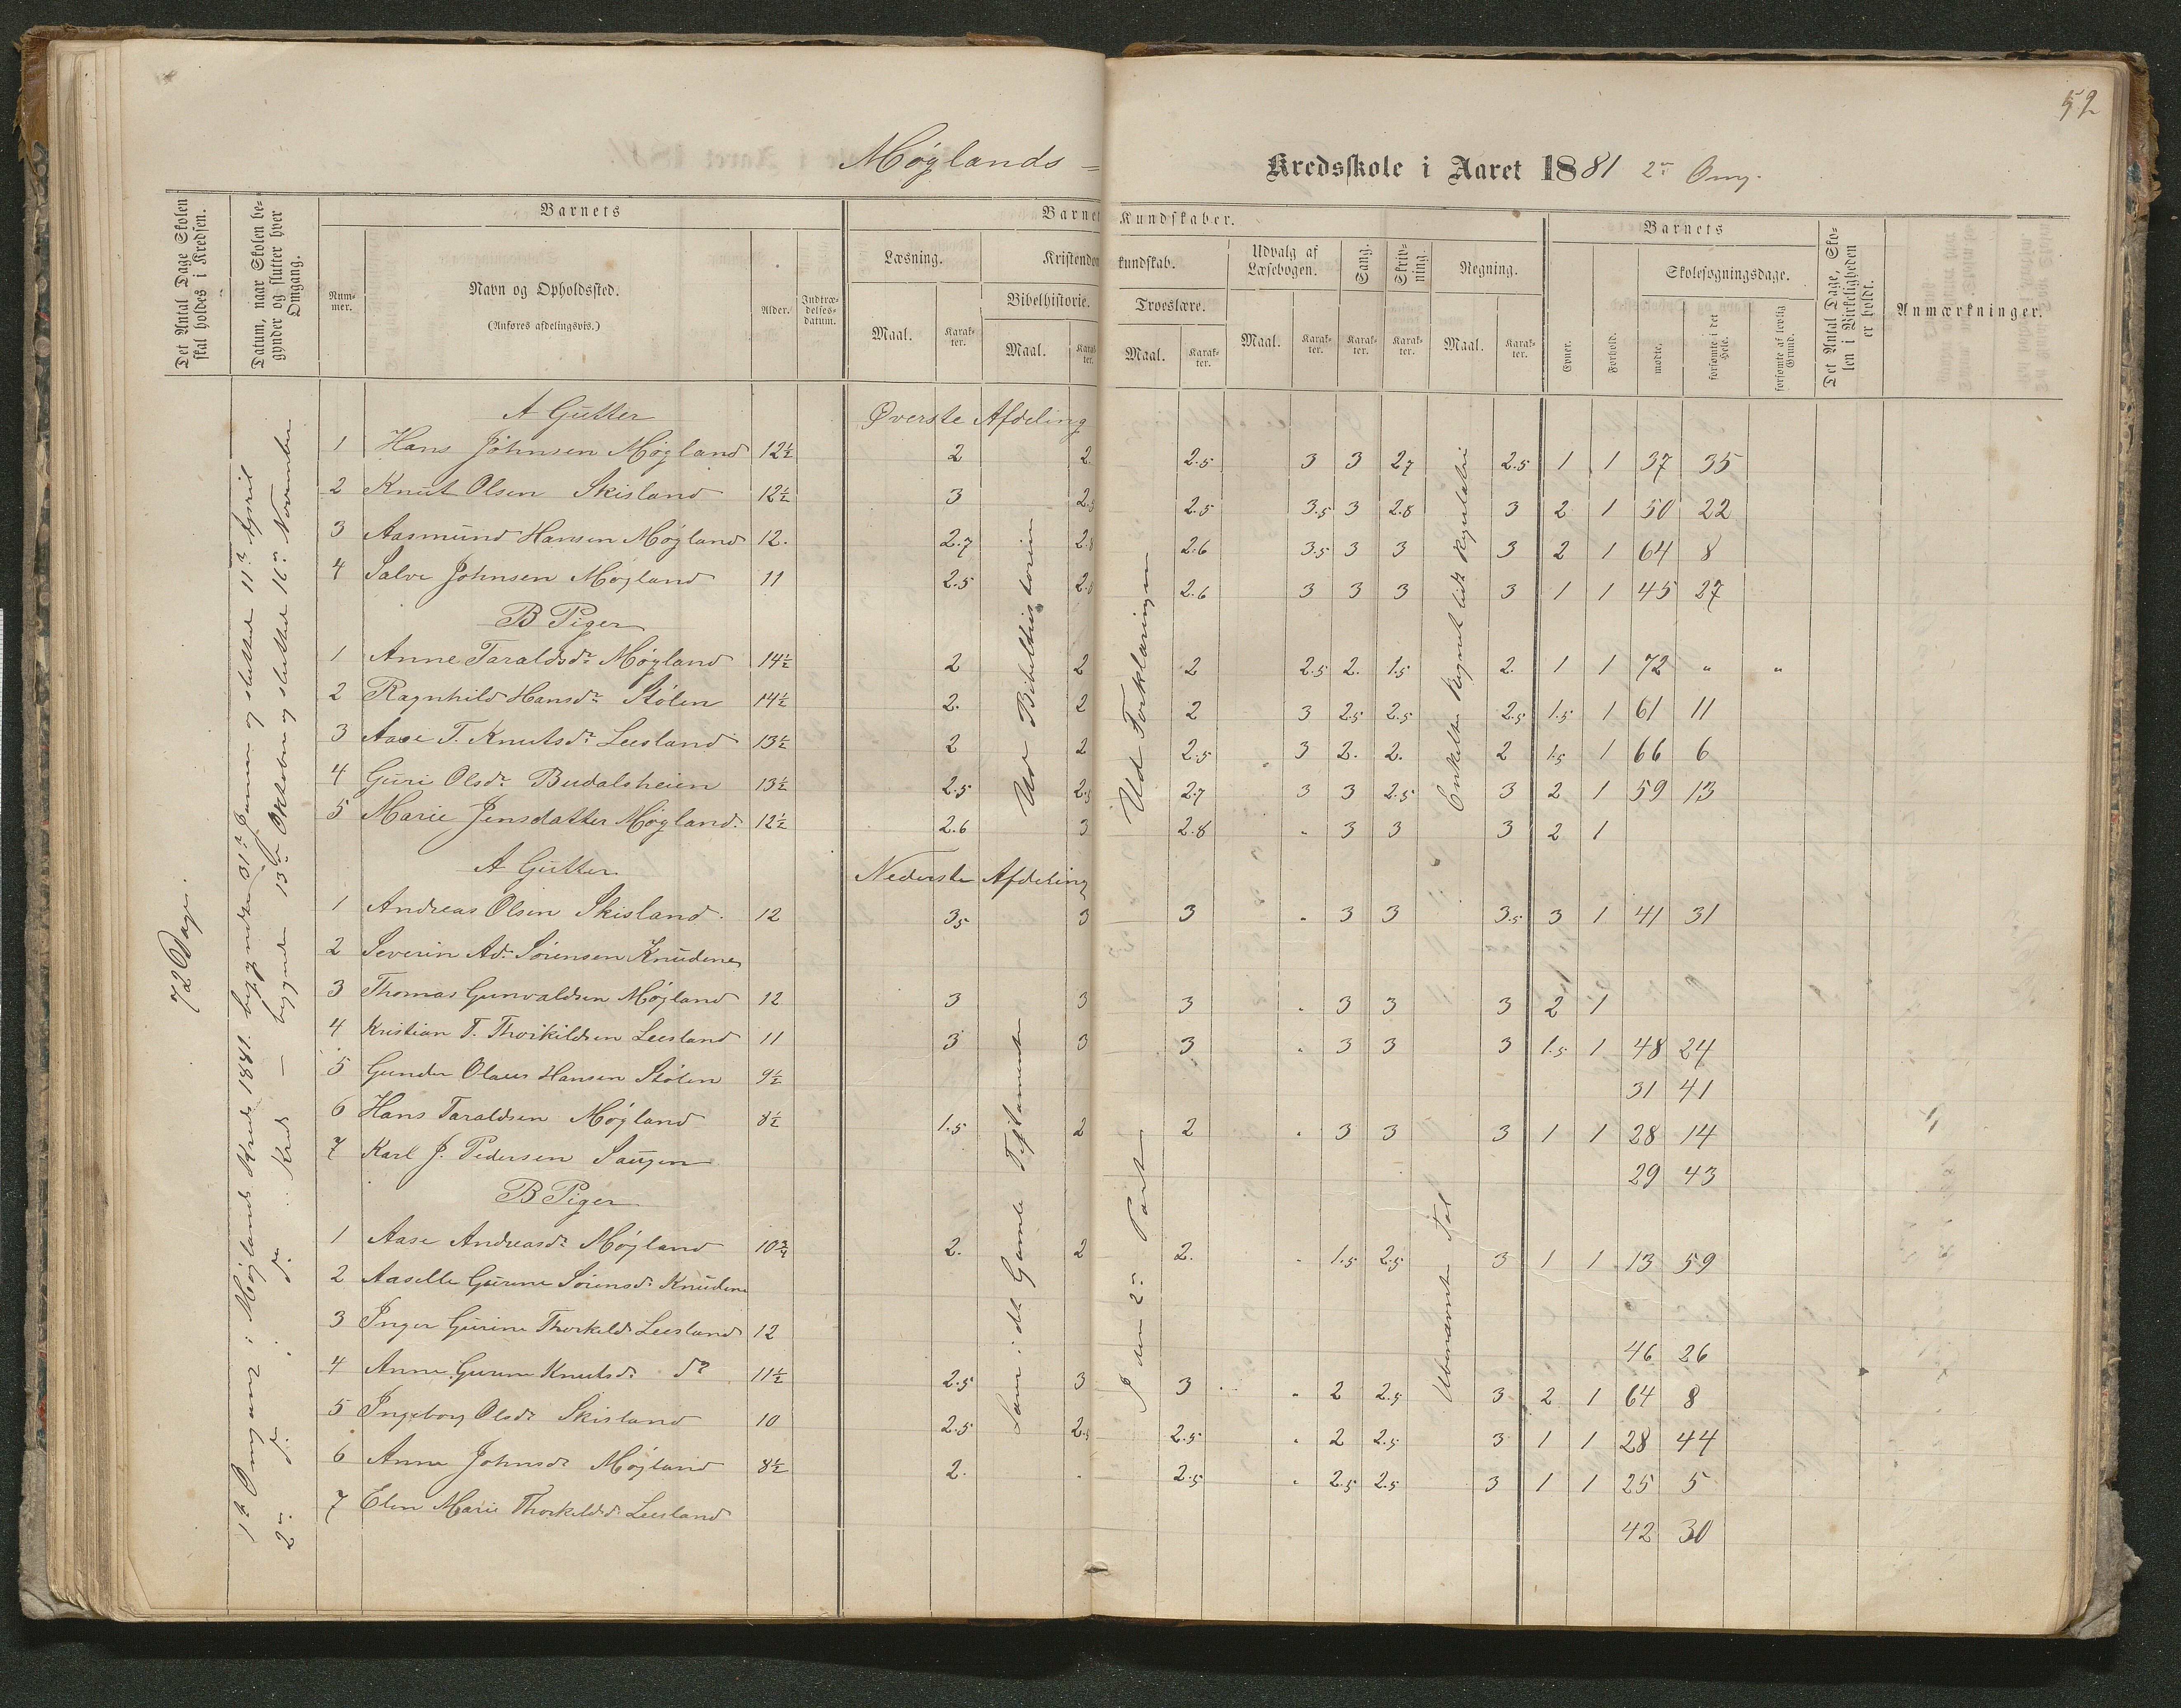 52
Møglands = Kredsskole i Aaret 1881 2n Omg.
Det Antal Dage Skolen skal holdes i Kredsen.
Datum, naar Skolen begynder og slutter hver Omgang.
Barnets
Nummer.
Navn og Opholdssted.
(Anføres afdelingsvis.)
Alder.
Indtrædelsesdatum.
Barnets Kundskaber.
Læsning.
Maal.
Karakter.
Kristendomskundskab.
Bibelhistorie.
Maal.
Karakter.
Troeslære.
Maal.
Karakter.
Udvalg af Læsebogen.
Maal.
Karakter.
Sang.
Karakter.
Skrivning.
Karakter.
Regning.
Maal.
Karakter.
Barnets
Evner.
Forhold.
Skolesøgningsdage.
mødte.
forsømte i det Hele.
forsømte af lovlig Grund.
Det Antal Dage, Skolen i Virkeligheden er holdt.
Anmærkninger.
72 Dage.
1ste Omgang i Møglands Kreds 1881 begyndte 31te Januar og sluttede 11te April
2n do. do. Kreds — begyndte 13de Oktober og sluttede 16n November
A Gutter Øverste Afdeling
1 Hans Johnsen Møgland 12½ 2 2. 2.5 3 3 2.7 2.5 1 1 37 35
2 Knut Olsen Skisland 12½ 3 2.5 2.5 3.5 3 2.8 3 2 1 50 22
3 Aasmund Hansen Møgland 12. 2.7 2.8 2.6 3.5 3 3 3 2 1 64 8
4 Salve Johnsen Møgland 11 2.5 2.8 2.6 3 3 3 3 1 1 45 27
B Piger
1 Anne Taraldsdr Møgland 14½ 2 2 2 2.5 2. 1.5 2. 1 1 72 " "
2 Ragnhild Hansdr Stølen 14½ 2. 2 2 3 2.5 2.5 2.5 1.5 1 61 11
3 Aase T. Knutsdr Leesland 13½ 2 2 2.5 3 2. 2. 2 1.5 1 66 6
4 Guri Olsdr Budalsheien 13½ 2.5 2.5 2.7 3 3 2.5 3 2 1 59 13
5 Marie Jensdatter Møgland. 12½ 2.6 3 2.8 " 3 3 3 2 1
Ud Bibelhistorien
Ud Forklaringen
Enkelte Regnet lidt
A Gutter Nederste Afdeling
1 Andreas Olsen Skisland. 12 3.5 3 3 " 3 3 3.5 3 1 41 31
2 Severin Ad. Sørensen Knudene
3 Thomas Gunvaldsen Møgland 12 3 3 3 " 3 3 3 2 1
4 Kristian T. Thorkildsen Leesland 11 3 3 3 " 3 3 3 1.5 1 48 24
5 Gunder Olaus Hansen Stølen 9½ 31 41
6 Hans Taraldsen Møgland 8½ 1.5 2 2 " 3 3 3 1 1 28 14
7 Karl J. Pedersen Saugen 29 43
B Piger
1 Aase Andreasdr Møgland 10¾ 2. 2 2. " 1.5 2.5 3 1 1 13 59
2 Aaselle Gurine Sørensdr Knudene
3 Inger Gurine Thorkeldr Leesland 12 46 26
4 Anne Gurine Knutsdr do 11½ 2.5 3 3 " 2 2.5 3 2 1 64 8
5 Ingeborg Olsdr Skisland 10 2.5 2.5 2.5 " 2 2.5 3 1 1 28 44
6 Anne Johnsdr Møgland 8½ 2. . 2.5 " 2.5 2.5 3 1 1 25 5
7 Elen Marie Thorkeldsdr Leesland 42 30
Læse i det Gamle Testamente
I den 2n Part
Ubenævnte Tal